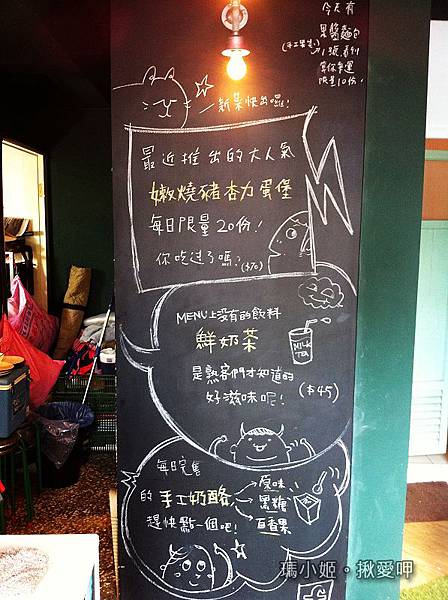 今天有
果醬麵包
(手工果醬)
限量10份!
新菜快出囉!
最近推出的大人氣
嫩燒豬杏力蛋堡
每日限量20份!
你吃过了嗎? ($70)
MENU上沒有的飲料
鮮奶茶
MILK
TEA
是熟客們才知道的
好滋味呢! ($45)
每日完售
的手工奶酪
原味
黑糖
百香果
趕快點一個吧!
瑪小姬。揪愛呷